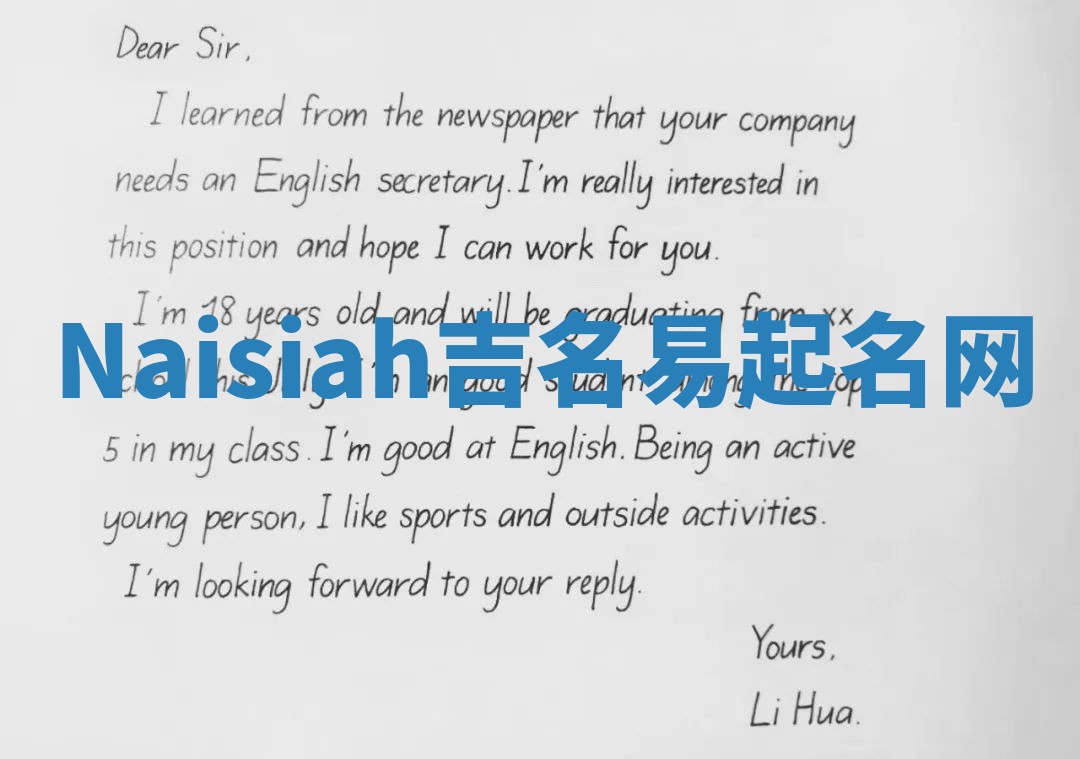 Dear Sir,
I learned from the newspaper that your company
needs an English secretary. I'm really interested in
this position and hope I can work for you.
I'm 18 years old and will be graduating from xx
Naisiah吉名易起名网
school this July. I'm an good student among the top
5 in my class. I'm good at English. Being an active
young person, I like sports and outside activities.
I'm looking forward to your reply.
Yours,
Li Hua.